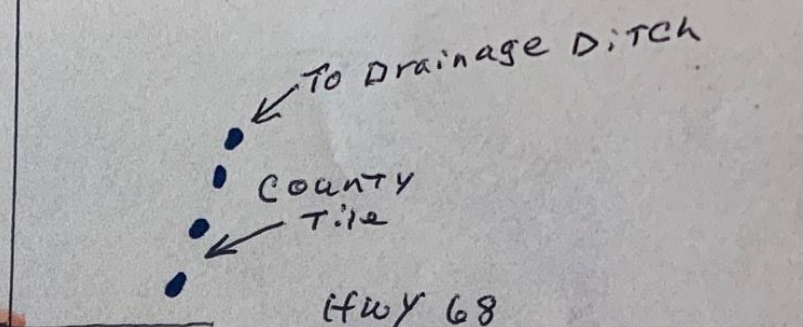 To Drainage Ditch
County
Tile
Hwy 68